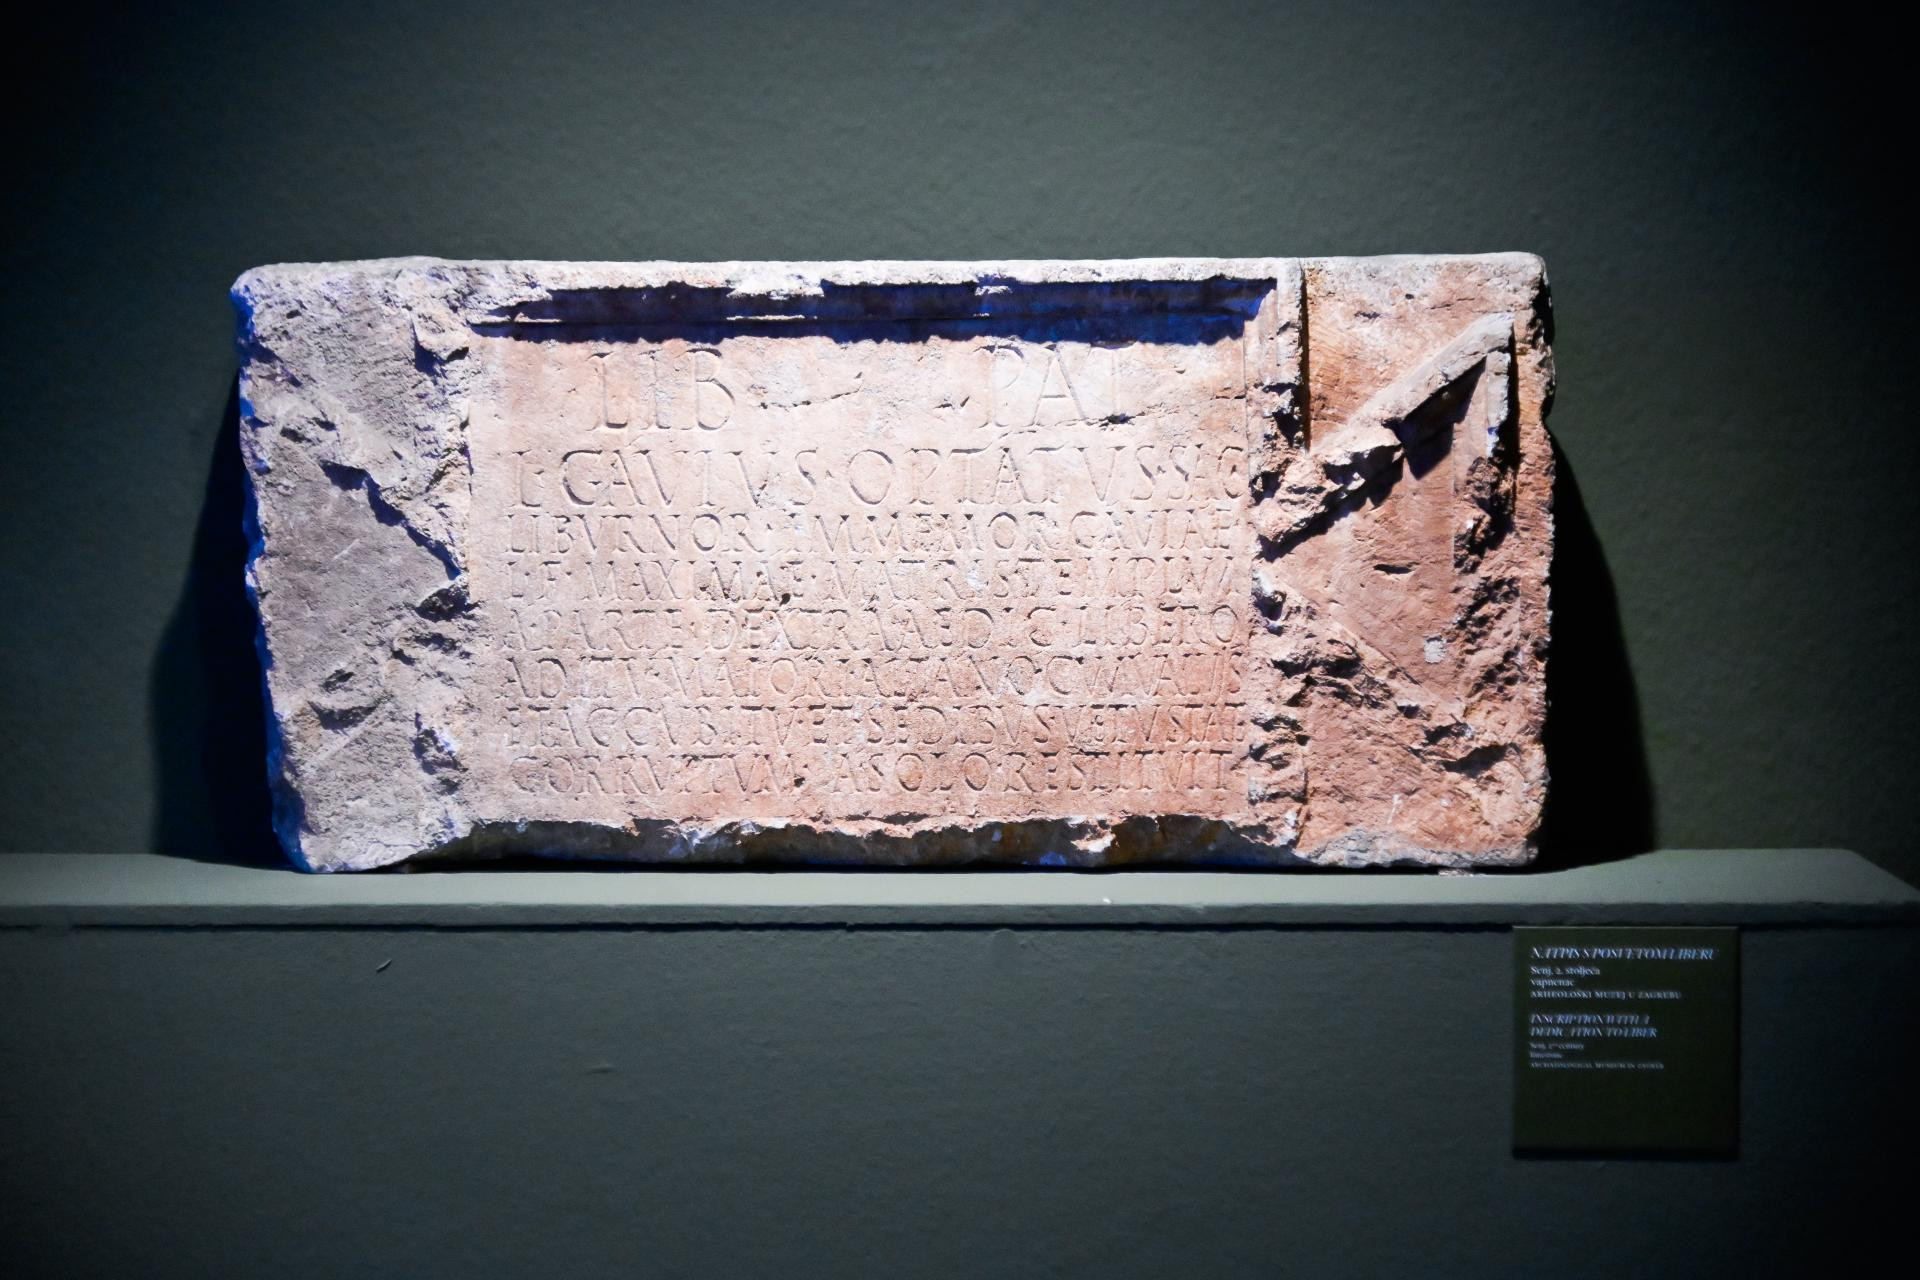 LIB PAT
L·GAVIVS·OPTATVS·SAC
LIBVRNOR·IMMEMOR·GAVIAE
L·F·MAXIMAE·MATRIS·TEMPLVM
A·PARTE·DEXTRA·AEDIC·LIBERO
ADITV·MAIORI
ET·ACCVBITV·ET·SEDIBVS·VETVSTATE
CORRVPTVM·A·SOLO·RESTITVIT
NATPIS S POSVETOM LIBERU
Senj, 2. stoljeća
vapnenac
ARHEOLOŠKI MUZEJ U ZAGREBU
INSCRIPTION WITH A
DEDICATION TO LIBER
Senj, 2nd century
limestone
ARCHAEOLOGICAL MUSEUM IN ZAGREB